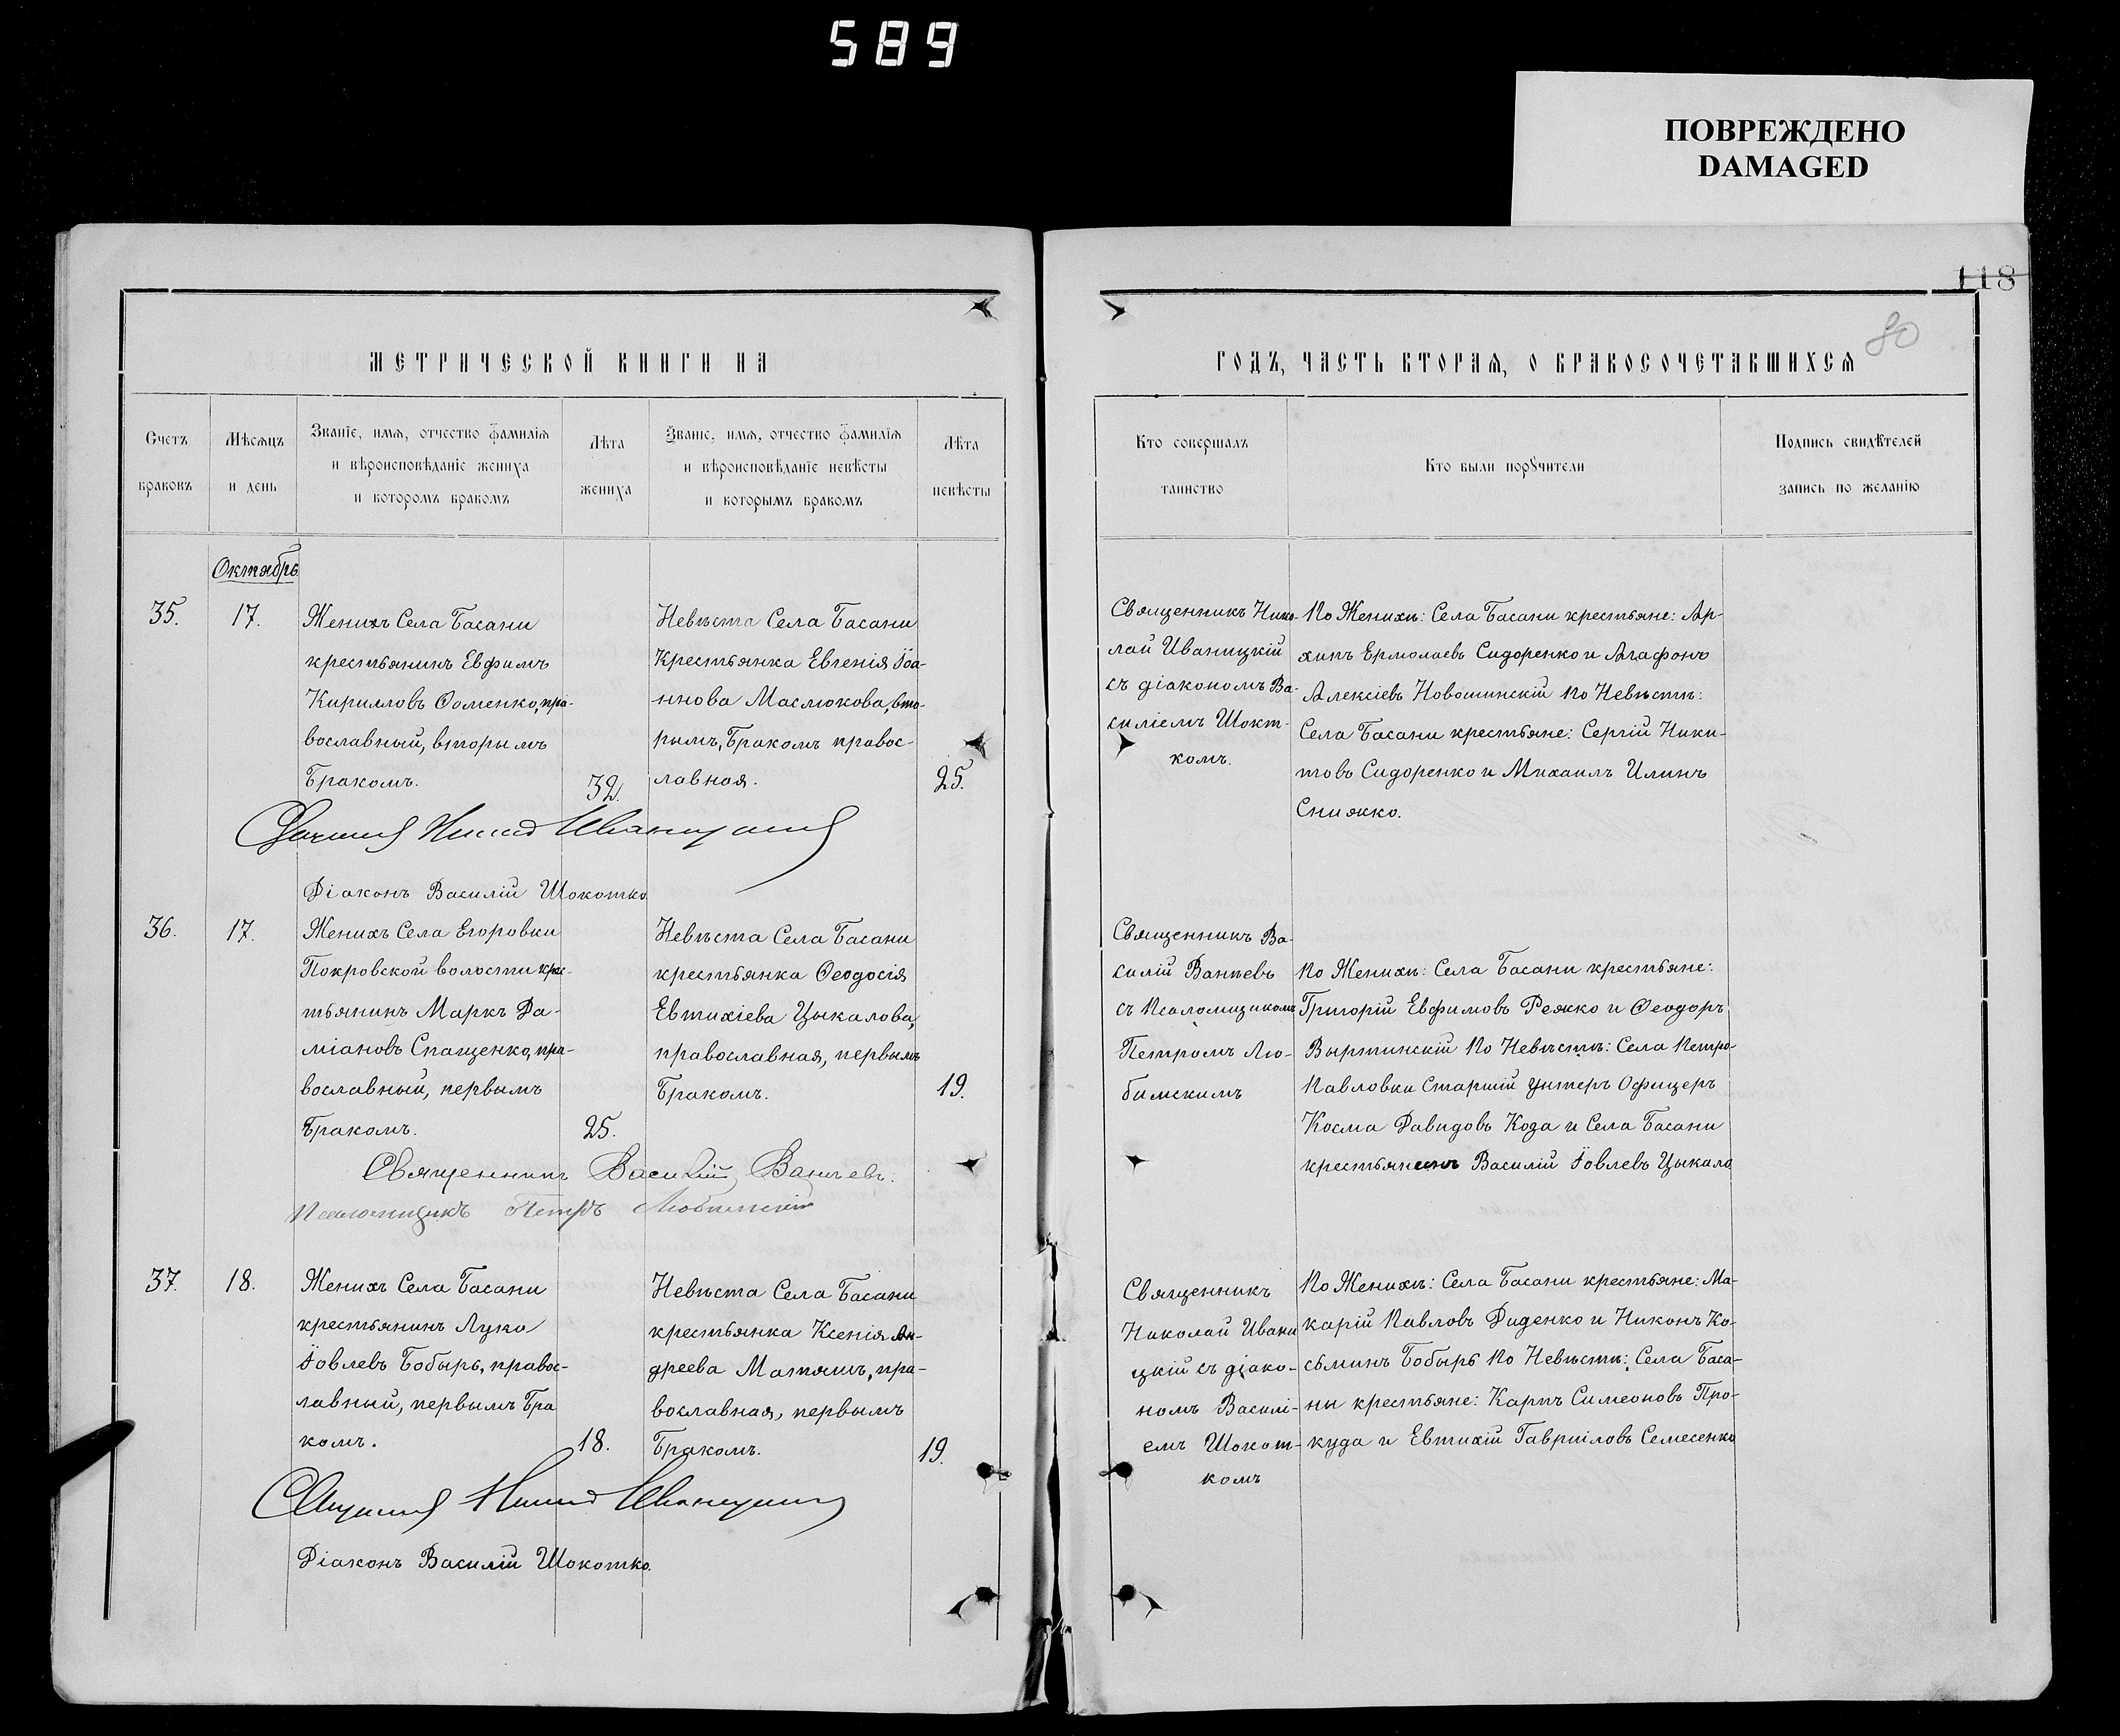 589
ПОВРЕЖДЕНО
DAMAGED
118
80
МЕТРИЧЕСКОЙ КНИГИ НА
ГОДЪ, ЧАСТЬ ВТОРАЯ, О БРАКОСОЧЕТАВШИХСЯ
Счетъ
браковъ
Мѣсяцъ
и день
Званіе, имя, отчество фамилія
и вѣроисповѣданіе жениха
и которомъ бракомъ
Лѣта
жениха
Званіе, имя, отчество фамилія
и вѣроисповѣданіе невѣсты
и которымъ бракомъ
Лѣта
невѣсты
Кто совершалъ
таинство
Кто были порꙋчители
Подпись свидѣтелей
запись по желанію
Октябрь
35.
17.
Женихъ Села Басани
крестьянинъ Евфимъ
Кирилловъ Ѳоменко, пра-
вославный, вторымъ
Бракомъ.
32.
Невѣста Села Басани
Крестьянка Евгенія Іоа-
ннова Маслюкова, вто-
рымъ, Бракомъ правос-
лавная.
25.
Священникъ Нико-
лай Иваницкій
съ діакономъ Ва-
силіемъ Шокот-
комъ.
По Женихѣ: Села Басани крестьяне: Ар-
хипъ Ермолаевъ Сидоренко и Агафонъ
Алексіевъ Новошинскій По Невѣстѣ:
Села Басани крестьяне: Сергій Ники-
товъ Сидоренко и Михаилъ Илинъ
Снижко.
Николай Иваницкий
Діаконъ Василій Шокотко
36.
17.
Женихъ Села Егоровки
Покровской волости крес-
тьянинъ Маркъ Да-
міановъ Спащенко, пра-
вославный, первымъ
Бракомъ.
25.
Невѣста Села Басани
крестьянка Ѳеодосія
Евтихіева Цыкалова,
православная, первымъ
Бракомъ.
19.
Священникъ Ва-
силій Ванчевъ
съ Псаломщикомъ
Петромъ Лю-
бимскимъ
По Женихѣ: Села Басани крестьяне:
Григорій Евфимовъ Режко и Ѳеодоръ
Выртинскій По Невѣстѣ: Села Петро-
Павловки Старшій Унтеръ Офицеръ
Косма Давидовъ Коза и Села Басани
крестьянинъ Василій Іовлевъ Цыкало
Священникъ Василій Ванчевъ.
Псаломщикъ Петръ Любимскій
37.
18.
Женихъ Села Басани
крестьянинъ Лука
Іовлевъ Бобырь, правос-
лавный, первымъ Бра
комъ.
18.
Невѣста Села Басани
крестьянка Ксенія Ан-
дреева Матяшъ, пра-
вославная, первымъ
Бракомъ.
19.
Священникъ
Николай Ивани
цкій съ діако-
номъ Василі-
емъ Шокот-
комъ
По Женихѣ: Села Басани крестьяне: Ма-
карій Павловъ Диденко и Никонъ Ко-
сьминъ Бобырь По Невѣстѣ: Села Баса-
ны крестьяне: Карпъ Симеоновъ Про-
куда и Евтихій Гавриловъ Семесенко
Николай Иваницкий
Діаконъ Василій Шокотко.